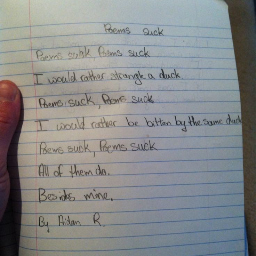 Poems suck
Poems suck, Poems suck
I would rather strangle a duck
Poems suck, Poems suck
I would rather be bitten by the same duck
Poems suck, Poems suck
All of them do.
Besides mine.
By Aidan R.